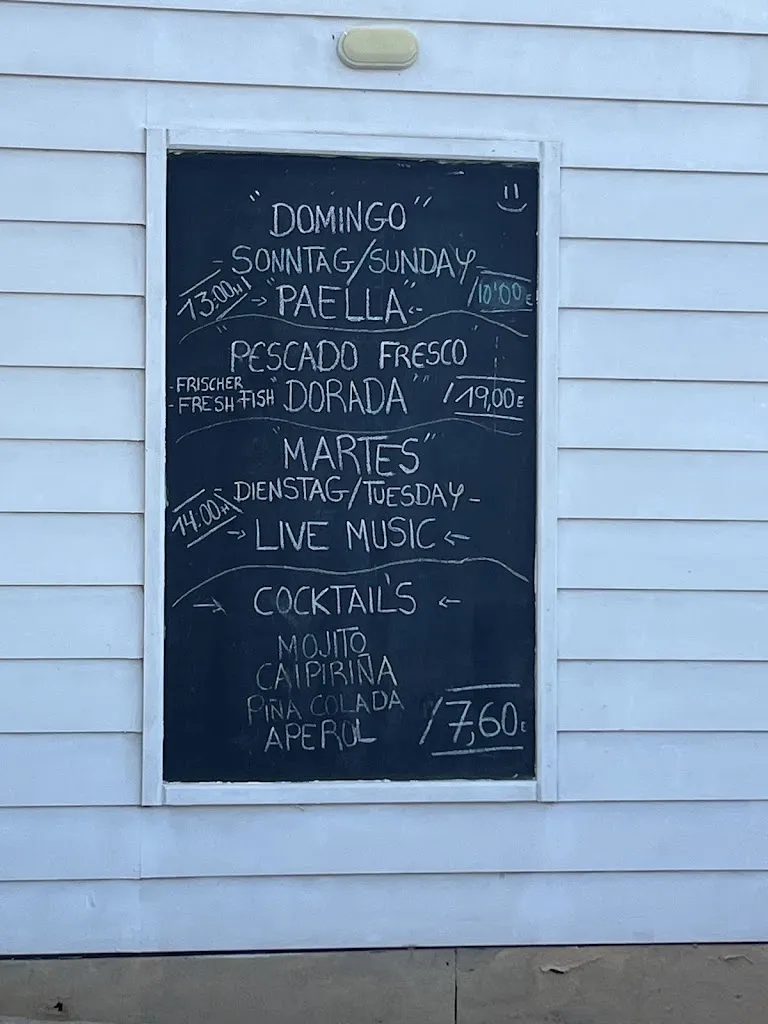 "DOMINGO"
- SONNTAG/SUNDAY -
13:00H → "PAELLA" ← /10'00€
"PESCADO FRESCO
- FRISCHER
- FRESH FISH "DORADA" /19,00€
"MARTES"
- DIENSTAG/TUESDAY -
14:00H → LIVE MUSIC ←
→ COCKTAIL'S ←
MOJITO
CAIPIRIÑA
PIÑA COLADA
APEROL /7,60€